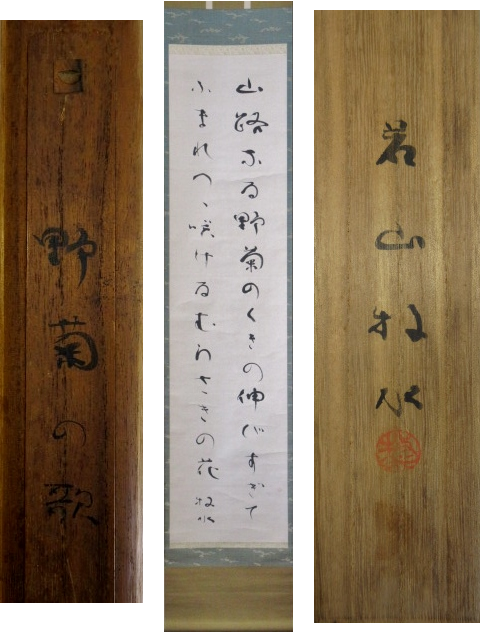 野菊の歌
山路なる野菊のくきの伸びすぎて
ふまれつゝ咲けるむらさきの花 牧水
若山牧水